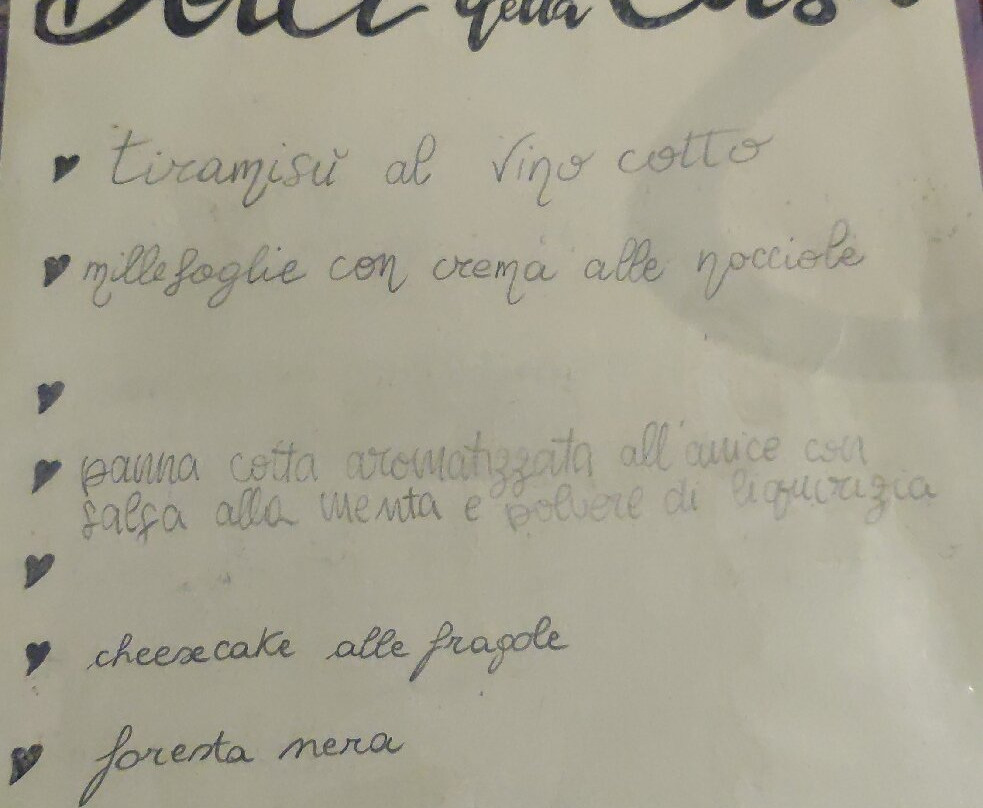 Dolci della Casa
tiramisù al vino cotto
millefoglie con crema alle nocciole
panna cotta aromatizzata all'anice con
salsa alla menta e polvere di liquirizia
cheesecake alle fragole
foresta nera